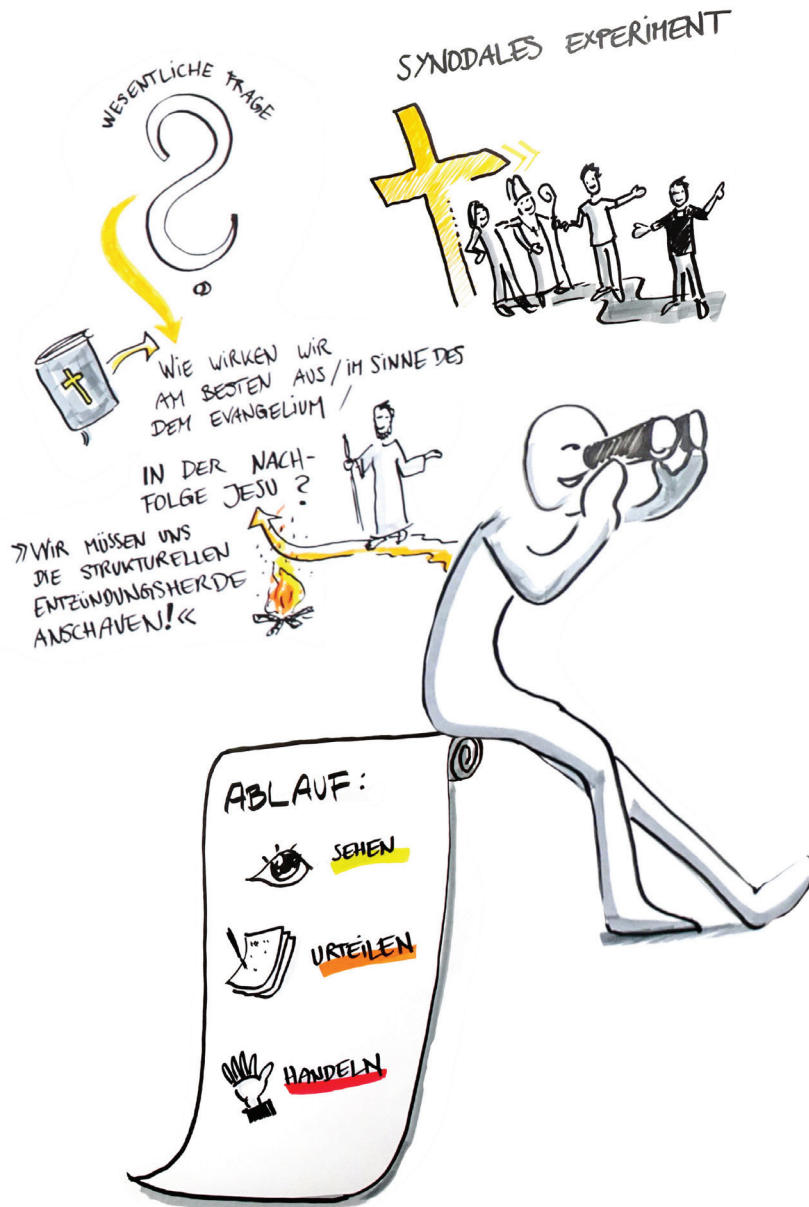 WESENTLICHE FRAGE
SYNODALES EXPERIMENT
WIE WIRKEN WIR
AM BESTEN AUS / IM SINNE DES
DEM EVANGELIUM /
IN DER NACH-
FOLGE JESU ?
»WIR MÜSSEN UNS
DIE STRUKTURELLEN
ENTZÜNDUNGSHERDE
ANSCHAUEN!«
ABLAUF:
SEHEN
URTEILEN
HANDELN